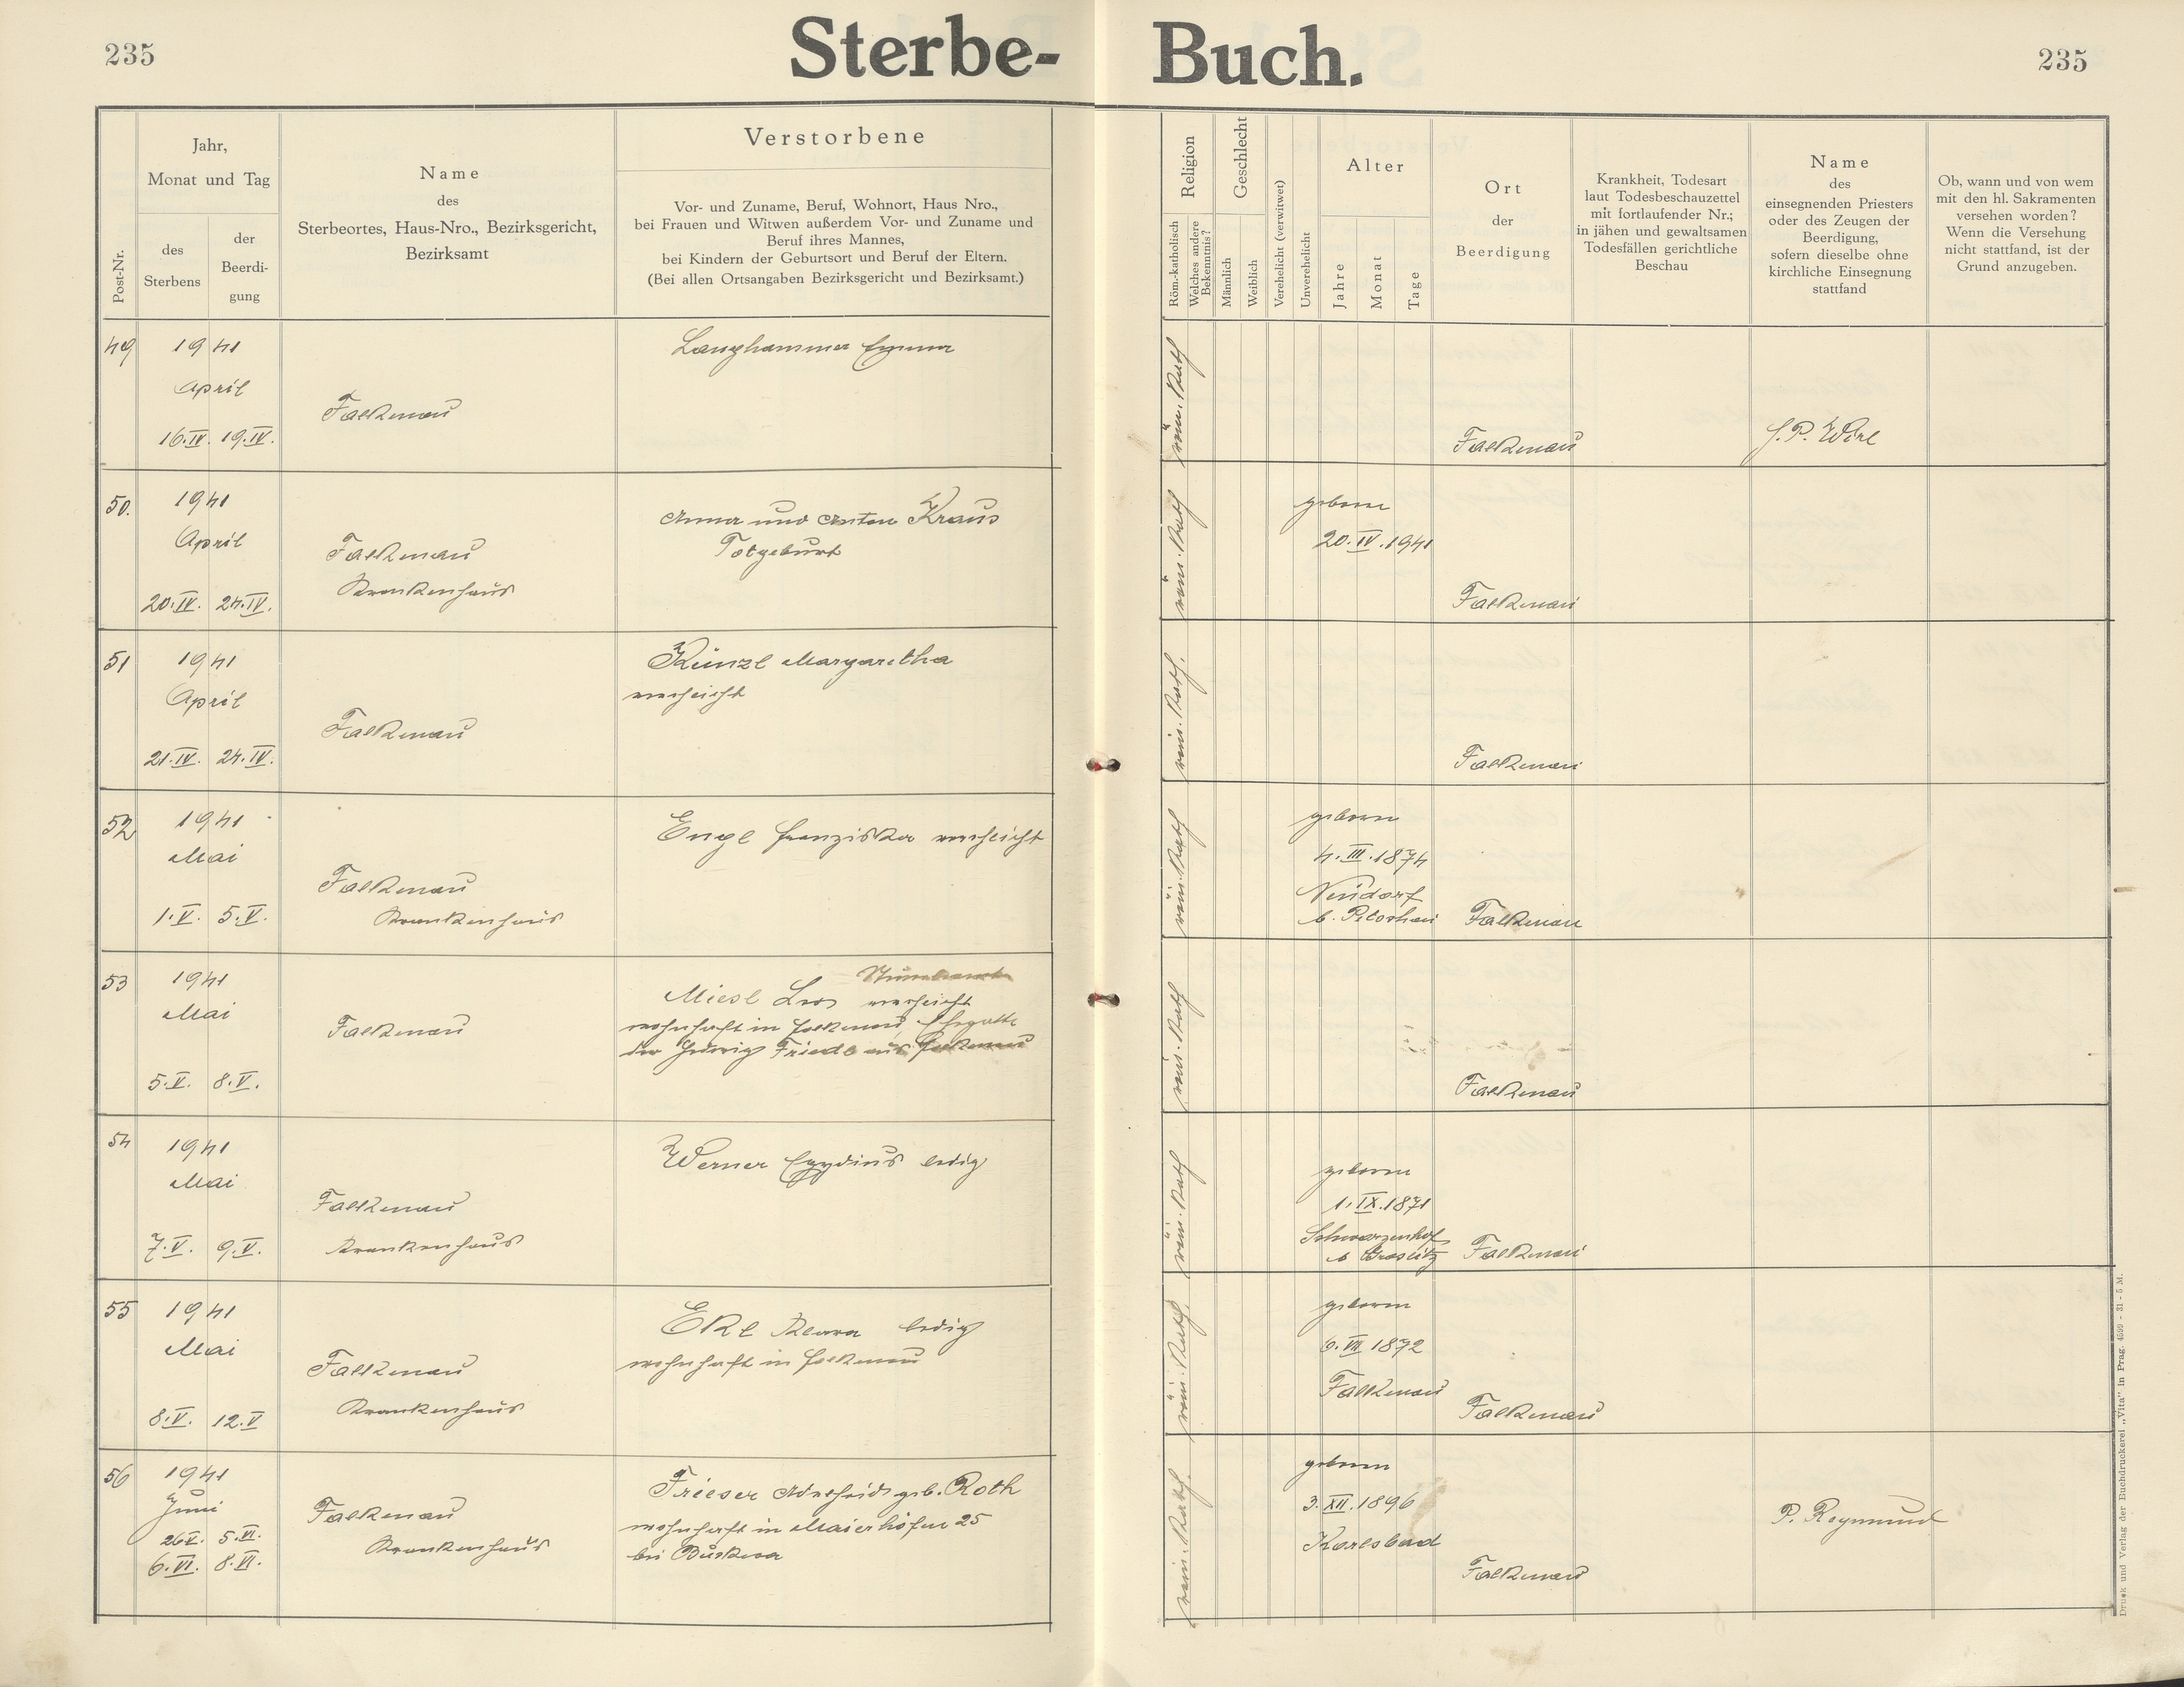 235
Sterbe-
Buch.
235
Post-Nr.
Jahr,
Monat und Tag
des
Sterbens
der
Beerdi-
gung
Name
des
Sterbeortes, Haus-Nro., Bezirksgericht,
Bezirksamt
Verstorbene
Vor- und Zuname, Beruf, Wohnort, Haus Nro.,
bei Frauen und Witwen außerdem Vor- und Zuname und
Beruf ihres Mannes,
bei Kindern der Geburtsort und Beruf der Eltern.
(Bei allen Ortsangaben Bezirksgericht und Bezirksamt.)
Religion
Röm.-katholisch
Welches andere
Bekenntnis?
Geschlecht
Männlich
Weiblich
Verehelicht (verwitwet)
Unverehelicht
Alter
Jahre
Monat
Tage
Ort
der
Beerdigung
Krankheit, Todesart
laut Todesbeschauzettel
mit fortlaufender Nr.;
in jähen und gewaltsamen
Todesfällen gerichtliche
Beschau
Name
des
einsegnenden Priesters
oder des Zeugen der
Beerdigung,
sofern dieselbe ohne
kirchliche Einsegnung
stattfand
Ob, wann und von wem
mit den hl. Sakramenten
versehen worden?
Wenn die Versehung
nicht stattfand, ist der
Grund anzugeben.
49
1941
April
16.IV. 19.IV.
Falkenau
Langhammer Emma
röm. Kath
Falkenau
P. Wirl
50.
1941
April
20.IV. 24.IV.
Falkenau
Krankenhaus
Anna und Anton Kraus
Totgeburt
röm. Kath
geboren
20.IV.1941
Falkenau
51
1941
April
21.IV. 24.IV.
Falkenau
Künzl Margaretha
verehlicht
röm. Kath.
Falkenau
52
1941
Mai
1.V. 5.V.
Falkenau
Krankenhaus
Engl Franziska verehlicht
röm. Kath
geboren
4.III.1874
Neudorf
b.
Falkenau
53
1941
Mai
5.V. 8.V.
Falkenau
Miesl Leo verehlicht
wohnhaft in Falkenau, Ehegatte
der Hedwig Friedl aus Falkenau
röm. Kath
Falkenau
54
1941
Mai
7.V. 9.V.
Falkenau
Krankenhaus
Werner Egydius ledig
röm. Kath
geboren
1.IX.1871
Schwarzenhof
b Graslitz
Falkenau
55
1941
Mai
8.V. 12.V
Falkenau
Krankenhaus
Ekl Klara ledig
wohnhaft in Falkenau
röm. Kath.
geboren
6.VII 1872
Falkenau
Falkenau
56
1941
Juni
26V. 5.VI.
6.VI. 8.VI.
Falkenau
Krankenhaus
Frieser Adelheid geb. Roth
wohnhaft in Maierhöfen 25
bei
röm. Kath.
geboren
3.XII.1896
Karlsbad
Falkenau
P. Reymund
Druck und Verlag der Buchdruckerei „Vita" in Prag. 4599 - 31 - 5 M.